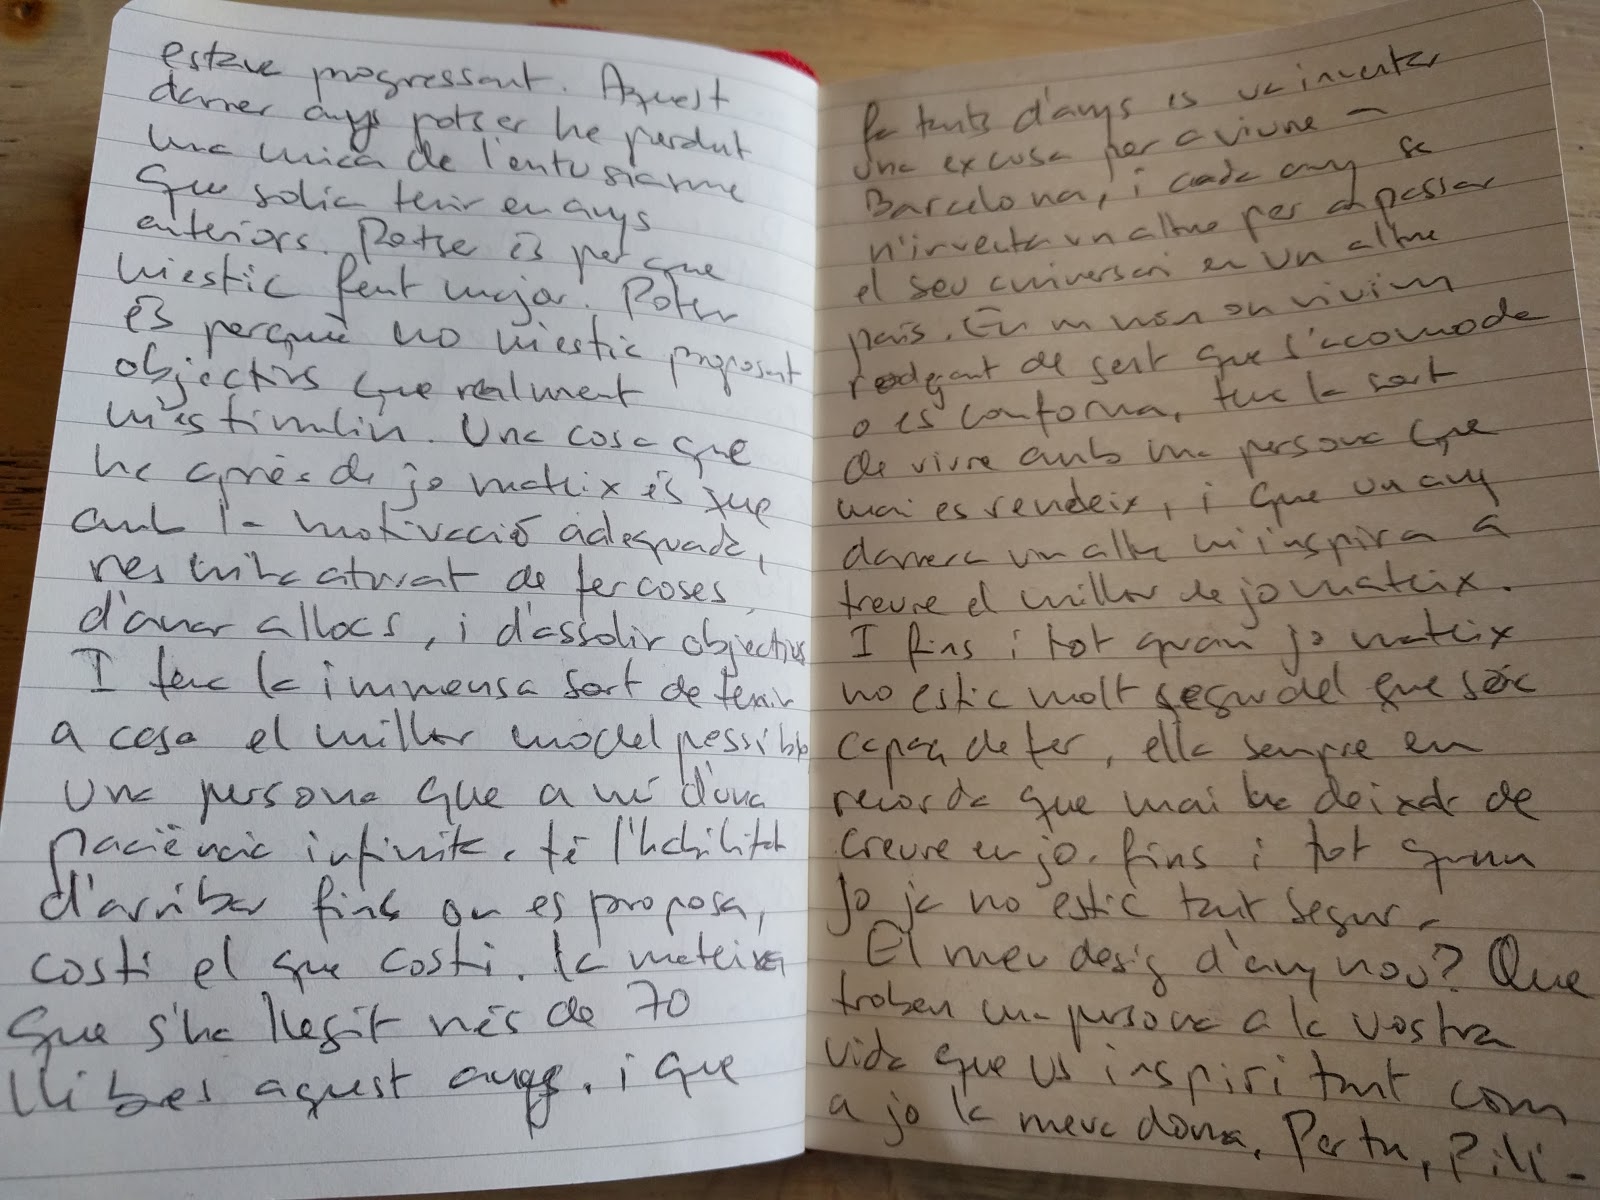 estava progressant. Aquest
darrer any potser he perdut
una mica de l'entusiasme
que solia tenir en anys
anteriors. Potser és per que
m'estic fent major. Potser
és perquè no m'estic proposant
objectius que realment
m'estimulin. Una cosa que
he après de jo mateix és que
amb la motivació adequada,
res m'ha aturat de fer coses,
d'anar a llocs, i d'assolir objectius
I tenc la immensa sort de tenir
a casa el millor model possible
Una persona que a mí d'una
paciència infinita, té l'habilitat
d'arribar fins on es proposa,
costi el que costi. la mateixa
que s'ha llegit més de 70
llibres aquest any, i que
fa tants d'anys es va inventar
una excusa per a viure a
Barcelona, i cada any se
n'inventa un altre per a passar
el seu aniversari en un altre
país. En un món on vivim
rodejant de gent que s'acomoda
o es conforma, tenc la sort
de vivre amb una persona que
mai es rendeix, i que un any
darrera un altre m'inspira a
treure el millor de jo mateix.
I fins i tot quan jo mateix
no estic molt segur del que sóc
capaç de fer, ella sempre em
recorda que mai ha deixat de
creure en jo. fins i tot quan
jo ja no estic tant segur.
El meu desig d'any nou? Que
troben una persona a la vostra
vida que us inspiri tant com
a jo la meva dona. Per tu, Pili.